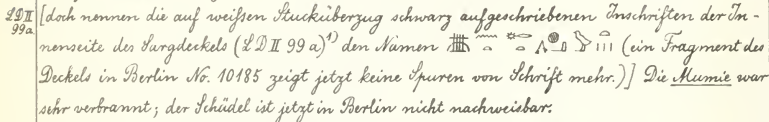 LD II 99a [doch nennen die auf weißen Stucküberzug schwarz aufgeschriebenen Inschriften der In-
nenseite des Sargdeckels (LD II 99a)¹⁾ den Namen (ein Fragment des
Deckels in Berlin No. 10185 zeigt jetzt keine Spuren von Schrift mehr.)] Die Mumie war
sehr verbrannt; der Schädel ist jetzt in Berlin nicht nachweisbar.